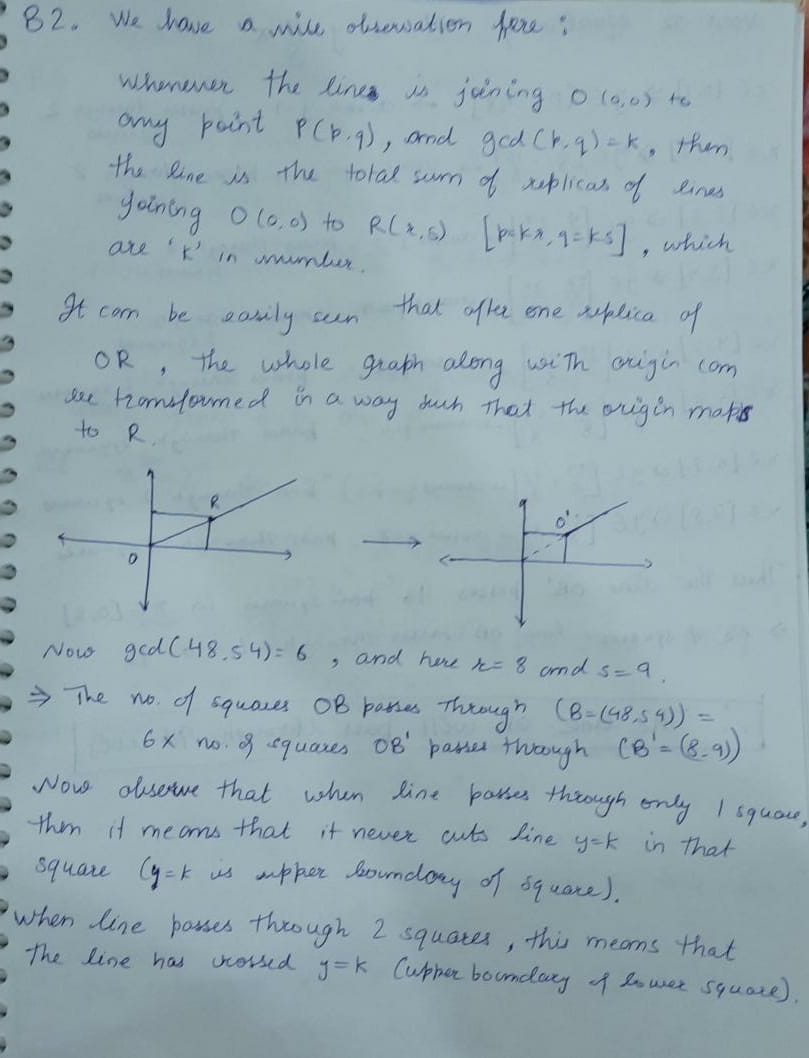 B2. We have a nice observation here :
Whenever the lines is joining O (0,0) to
any point P(p,q), and gcd (p,q)=k, then
the line is the total sum of replicas of lines
joining O (0,0) to R(r,s) [p=kr, q=ks], which
are 'k' in number.
It can be easily seen that after one replica of
OR, the whole graph along with origin can
be transformed in a way such that the origin maps
to R.
R
O
O'
Now gcd(48,54)=6, and here r=8 and s=9.
⇒ The no. of squares OB passes through (B=(48,54)) =
6 × no. of squares OB' passes through (B'=(8,9))
Now observe that when line passes through only 1 square,
then it means that it never cuts line y=k in that
square (y=k is upper boundary of square).
When line passes through 2 squares, this means that
the line has crossed y=k (upper boundary of lower square).